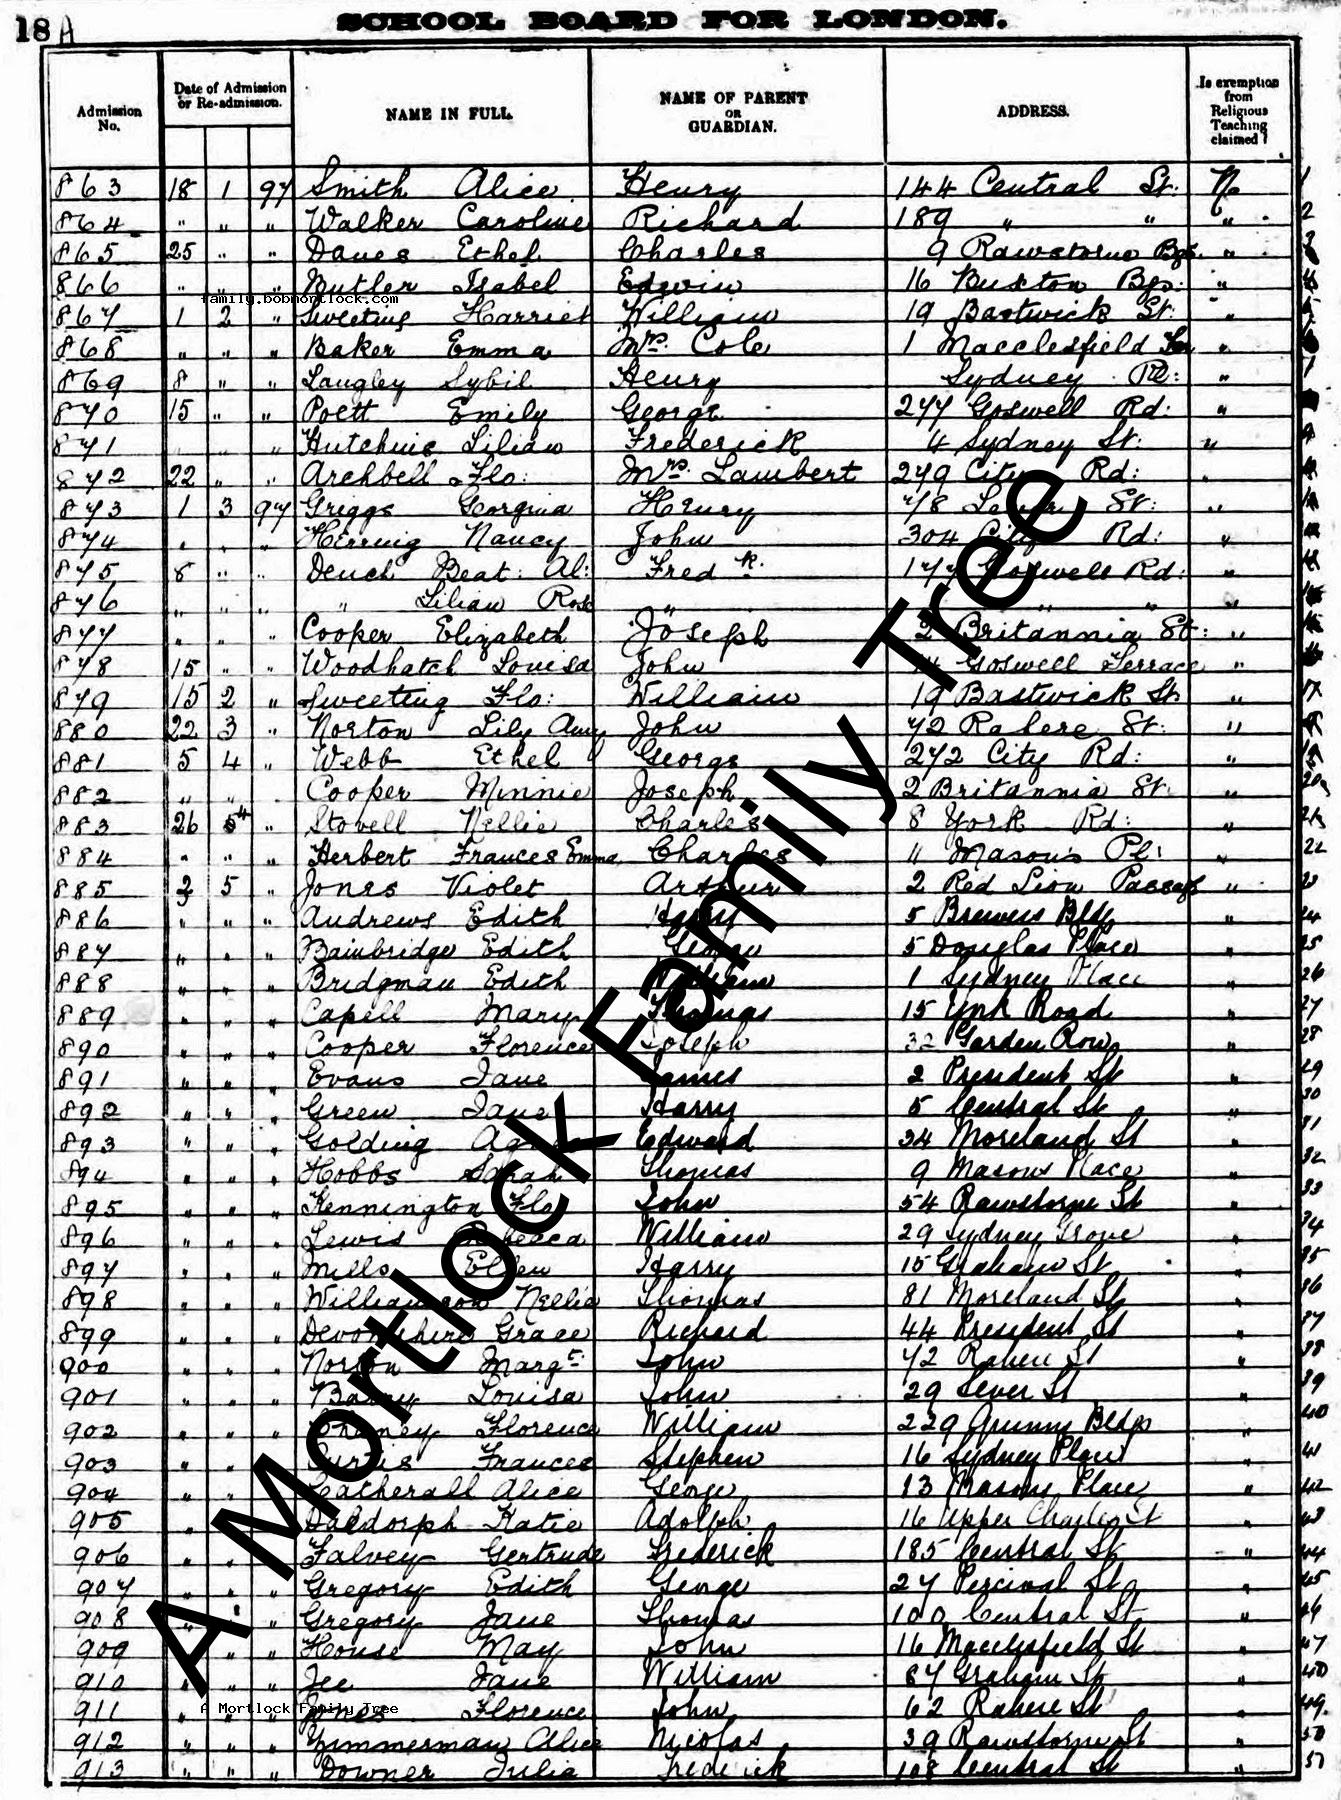 18 A SCHOOL BOARD FOR LONDON.
Admission No. Date of Admission or Re-admission. NAME IN FULL. NAME OF PARENT OR GUARDIAN. ADDRESS. Is exemption from Religious Teaching claimed?
863 18 1 97 Smith Alice Henry 144 Central St: No 1
864 " " " Walker Caroline Richard 189 " " " 2
865 25 " " Daves Ethel Charles 9 Rawstorne Bgs. "
866 " " " Butler Isabel Edwin 16 Buxton Bgs: "
family.bobmortlock.com
867 1 2 " Sweeting Harriet William 19 Bastwick St: "
868 " " " Baker Emma Mrs. Cole 1 Macclesfield Ter "
869 8 " " Langley Sybil Henry Sydney Rd: "
870 15 " " Poett Emily George 277 Goswell Rd: "
871 " " " Hutchins Lilian Frederick 4 Sydney St: "
872 22 " " Archbell Flo: Mrs. Lambert 279 City Rd: "
873 1 3 97 Griggs Georgina Henry 78 Lever St: "
874 " " " Herring Nancy John 304 City Rd: "
875 8 " " Deuch Beat: Al: Fredk. 177 Goswell Rd: "
876 " " " " Lilian Rose " " " "
877 " " " Cooper Elizabeth Joseph 2 Britannia St: "
878 15 " " Woodhatch Louisa John Goswell Terrace "
879 15 2 " Sweeting Flo: William 19 Bastwick St. " 17
880 22 3 " Norton Lily Amy John 72 Rahere St: "
881 5 4 " Webb Ethel George 272 City Rd: " 19
882 " " " Cooper Minnie Joseph 2 Britannia St. " 20
883 26 4 " Stovell Nellie Charles 8 York Rd: " 21
884 " " " Herbert Frances Emma Charles 11 Mason's Pl: " 22
885 2 5 " Jones Violet Arthur 2 Red Lion Passage " 23
886 " " " Andrews Edith Harry 5 Brewers Bldg " 24
887 " " " Bainbridge Edith George 5 Douglas Place " 25
888 " " " Bridgman Edith William 1 Sydney Place " 26
889 " " " Capell Mary Thomas 15 York Road " 27
890 " " " Cooper Florence Joseph 32 Garden Row " 28
891 " " " Evans Jane James 2 President St " 29
892 " " " Green Jane Harry 5 Central St " 30
893 " " " Golding Agnes Edward 34 Moreland St " 31
894 " " " Hobbs Sarah Thomas 9 Masons Place " 32
895 " " " Kennington Flo John 54 Rawstorne St " 33
896 " " " Lewis Rebecca William 29 Sydney Grove " 34
897 " " " Mills Ellen Harry 15 Graham St " 35
898 " " " Williamson Nellie Thomas 81 Moreland St " 36
899 " " " Devonshire Grace Richard 44 President St " 37
900 " " " Norton Margt. John 72 Rahere St " 38
901 " " " Louisa John 29 Lever St " 39
902 " " " Florence William 229 Bldgs " 40
903 " " " Curtis Frances Stephen 16 Sydney Place " 41
904 " " " Catherall Alice George 13 Masons Place " 42
905 " " " Daldorph Katie Adolph 16 Upper Charles St " 43
906 " " " Falvey Gertrude Frederick 185 Central St " 44
907 " " " Gregory Edith George 27 Percival St " 45
908 " " " Gregory Jane Thomas 100 Central St " 46
909 " " " House May John 16 Macclesfield St " 47
910 " " " Jee Jane William 87 Graham St " 48
A Mortlock Family Tree
911 " " " Jones Florence John 62 Rahere St " 49
912 " " " Zimmerman Alice Nicolas 39 Rawstorne St " 50
913 " " " Downer Julia Frederick 108 Central St " 51
A Mortlock Family Tree